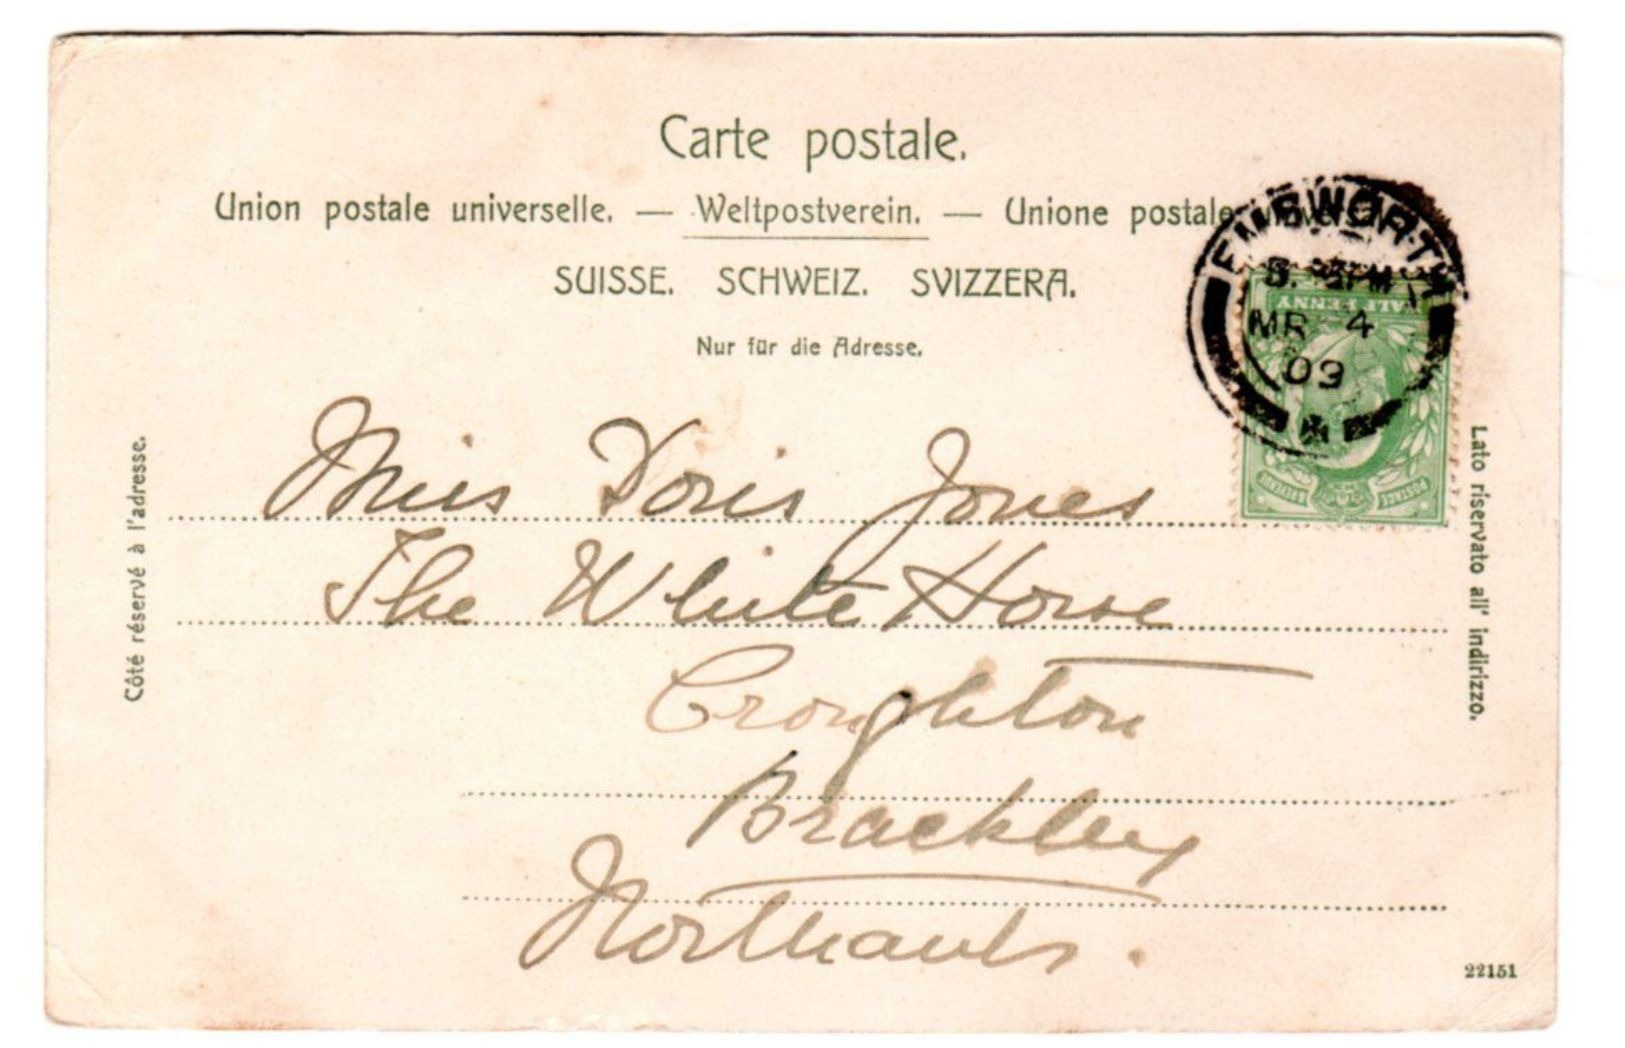 Carte postale.
Union postale universelle. — Weltpostverein. — Unione postale
SUISSE. SCHWEIZ. SVIZZERA.
Nur für die Adresse.
EMSWORTH
PM
MR 4
03
HALF PENNY
POSTAGE & REVENUE
Côté réservé à l'adresse.
Lato riservato all' indirizzo.
Miss Doris Jones
The White Horse
Croughton
Brackley
Northants.
22151